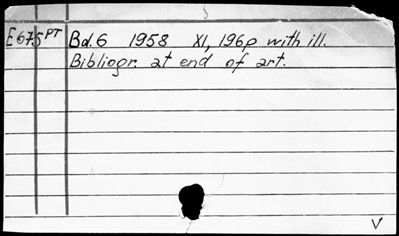 E675PT Bd.6 1958 XI, 196p with ill.
Bibliogr. at end of art.
V